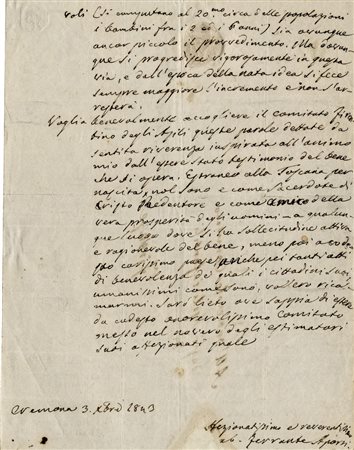 voli (si computano al 20.mo circa delle popolazioni
i bambini fra i 2 ed i 6 anni) sia dunque
ancor piccolo il provvedimento. Ma dovun
que si progredisce vigorosamente in questa
via, e dall'epoca della nata idea si fece
sempre maggiore l'incremento e non s'ar
resterà.
Voglia benevolmente accogliere il Comitato Fioren
tino degli Asili queste parole dettate da
sentita riverenza inspirata all'animo
mio dall'essere stato testimonio del bene
che si opera. Estraneo alla Toscana per
nascita, nol sono e come Sacerdote di
Cristo Redentore e come amico della
vera prosperità degli uomini — a qualun
que luogo dove si ha sollecitudine attiva
e ragionevole del bene, meno poi a code
sto carissimo paese anche pei tanti atti
di benevolenza de' quali i cittadini suoi
umanissimi come sono, vollero ricol
marmi. Sarò lieto ove sappia di essere
da codesto onorevolissimo Comitato
messo nel novero degli estimatori
suoi affezionati quale
Cremona 3. Xbre 1843
Affezionatissimo e reverente
ab. Ferrante Aporti